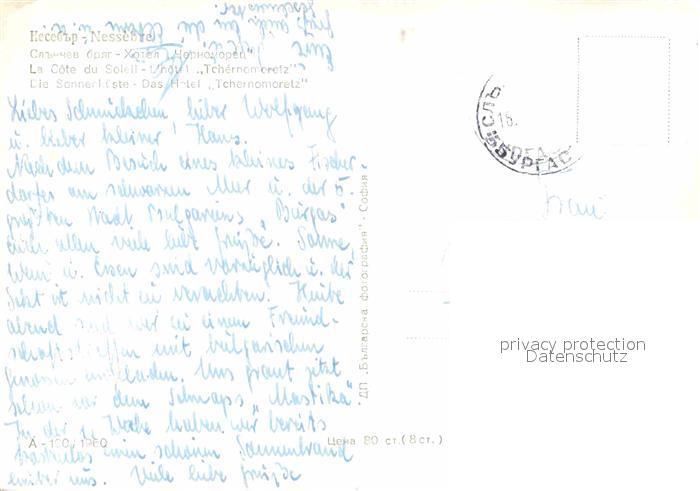 Несебър - Nessèbre
Слънчев бряг - Хотел „Черноморец"
La Côte du Soleil - L'hôtel „Tchernomoretz"
Die Sonnenküste - Das Hotel „Tchernomoretz"
Liebes Schnuckchen lieber Wolfgang
u. lieber kleiner Hans.
Nach dem Besuch eines kleines Fischer-
dorfes am schwarzen Meer u. der 5.
größten Stadt Bulgariens „Burgas"
euch allen viele liebe Grüße. Sonne,
Wein u. Essen sind vorzüglich u. der
Sekt ist nicht zu verachten. Heute
abend sind wir zu einem Freund-
schaftstreffen mit bulgarischen
Genossen eingeladen. Uns graut jetzt
schon vor dem Schnaps „Mastika"
In der 1. Woche haben wir bereits
einen schönen Sonnenbrand
hinter uns. Viele liebe Grüße
Eure
А - 130/1960
Цена 80 ст. (8 ст.)
ДП „Българска фотография" - София
СЛЪ
18.
БУРГАС
Frau
privacy protection
Datenschutz